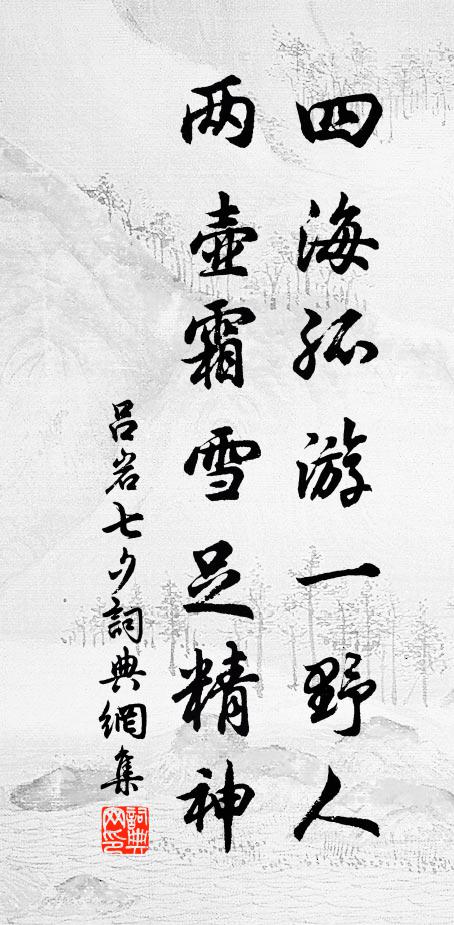 四海孤游一野人
两壶霜雪足精神
吕岩七夕詞典網集
詞典网印